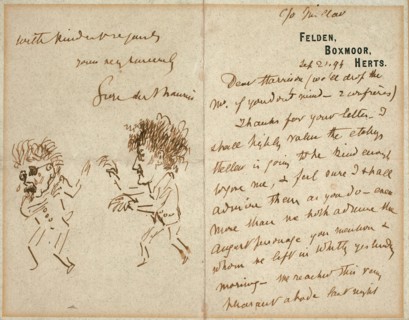 FELDEN,
BOXMOOR,
HERTS.
Sep 21. 94
Dear Harrison (we'll drop the
Mr. if you don't mind — 2 confrères)
Thanks for your letter. I
shall highly value the etchings
is going to be kind enough
to give me, & feel sure I shall
admire them as you do —
more than we both admire the
august personage you mention &
whom we left in Whitby yesterday
morning — we reached this very
pleasant abode last night
with kindest regards
yours very sincerely
George du Maurier